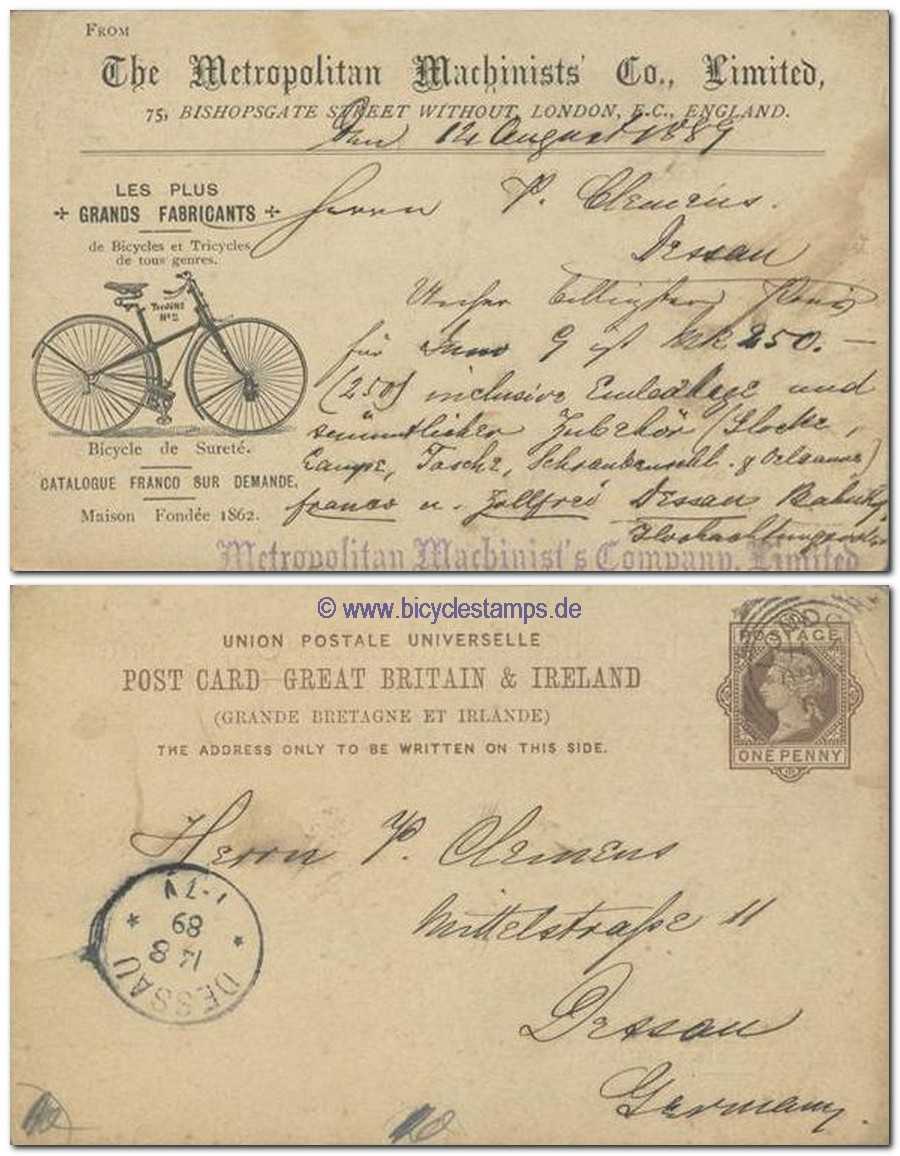 FROM
The Metropolitan Machinists' Co., Limited,
75, BISHOPSGATE STREET WITHOUT, LONDON, E.C., ENGLAND.
Den 12 August 1889
LES PLUS
GRANDS FABRICANTS
de Bicycles et Tricycles
de tous genres.
No 2
Bicycle de Sureté.
CATALOGUE FRANCO SUR DEMANDE,
Maison Fondée 1862.
Herrn P. Clemens.
Dessau
Unser Preis
für 9 ist Mk 250.—
(250) inclusive Emballage und
sämmtlicher Zubehör (Glocke,
Lampe, Tasche, Schraubenschl. & Oelkanne)
franco u. Zollfrei Dessau Bahnhof
Hochachtungsvoll
Metropolitan Machinist's Company, Limited
© www.bicyclestamps.de
UNION POSTALE UNIVERSELLE
POST CARD GREAT BRITAIN & IRELAND
(GRANDE BRETAGNE ET IRLANDE)
THE ADDRESS ONLY TO BE WRITTEN ON THIS SIDE.
POSTAGE
ONE PENNY
Herrn P. Clemens
Mittelstraße 11
Dessau
Germany.
DESSAU
14 8
89
1-7V